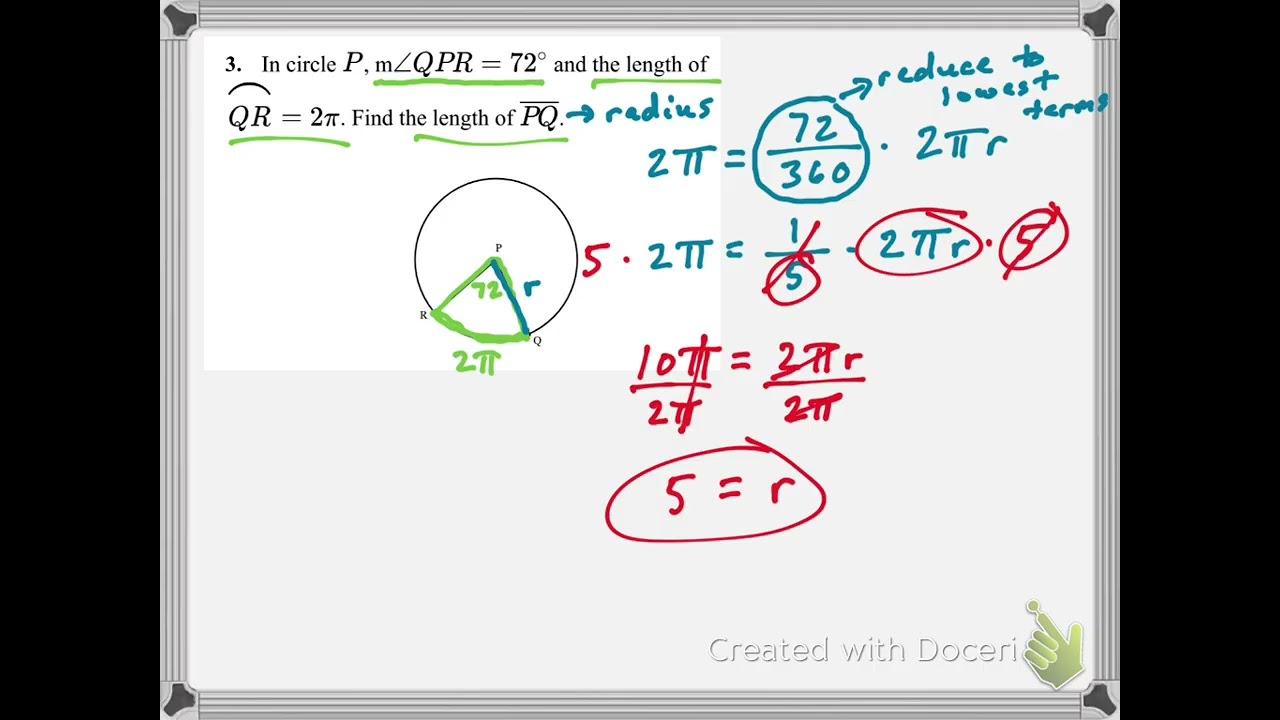 3. In circle P, m∠QPR = 72° and the length of
QR = 2π. Find the length of PQ. → radius
→ reduce to
lowest
terms
2π = 72/360 · 2πr
5 · 2π = 1/5 · 2πr · 5
10π/2π = 2πr/2π
5 = r
P
72 r
R
Q
2π
Created with Doceri